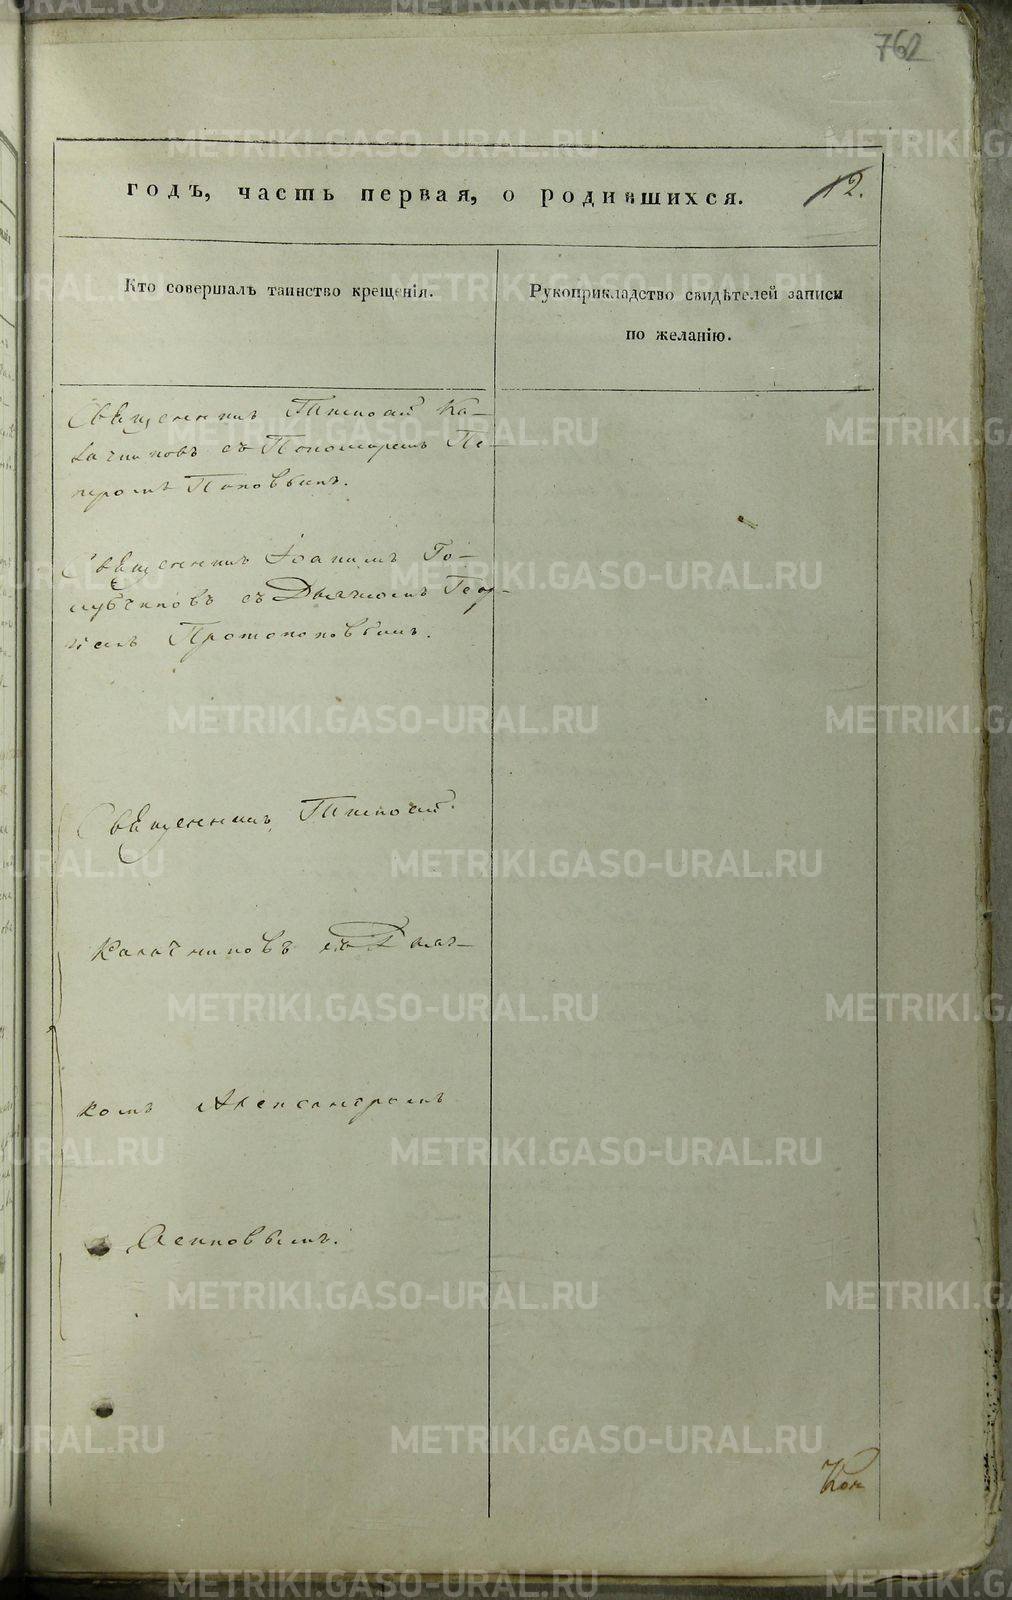 762
годъ, часть первая, о родившихся.
12.
Кто совершалъ таинство крещенія.
Рукоприкладство свидѣтелей записи
по желанію.
Священникъ Тимоѳей Ка-
лачниковъ съ Пономаремъ Пе-
тромъ Поповымъ.
Священникъ Іоаннъ Го-
лубчиковъ съ Дьячкомъ Геор-
гіемъ Протопоповымъ.
Священникъ Тимоѳей
Калачниковъ съ Дьяч-
комъ Александромъ
Осиповымъ.
METRIKI.GASO-URAL.RU